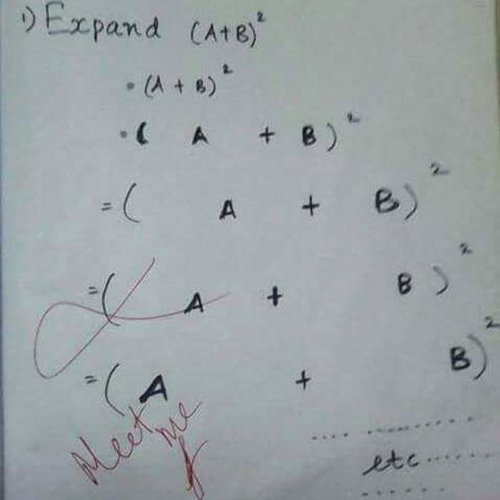 1) Expand (A+B)²
= (A + B)²
= ( A + B)²
= ( A + B)²
= ( A + B)²
= ( A + B)²
...........
etc.......
Meet me
......